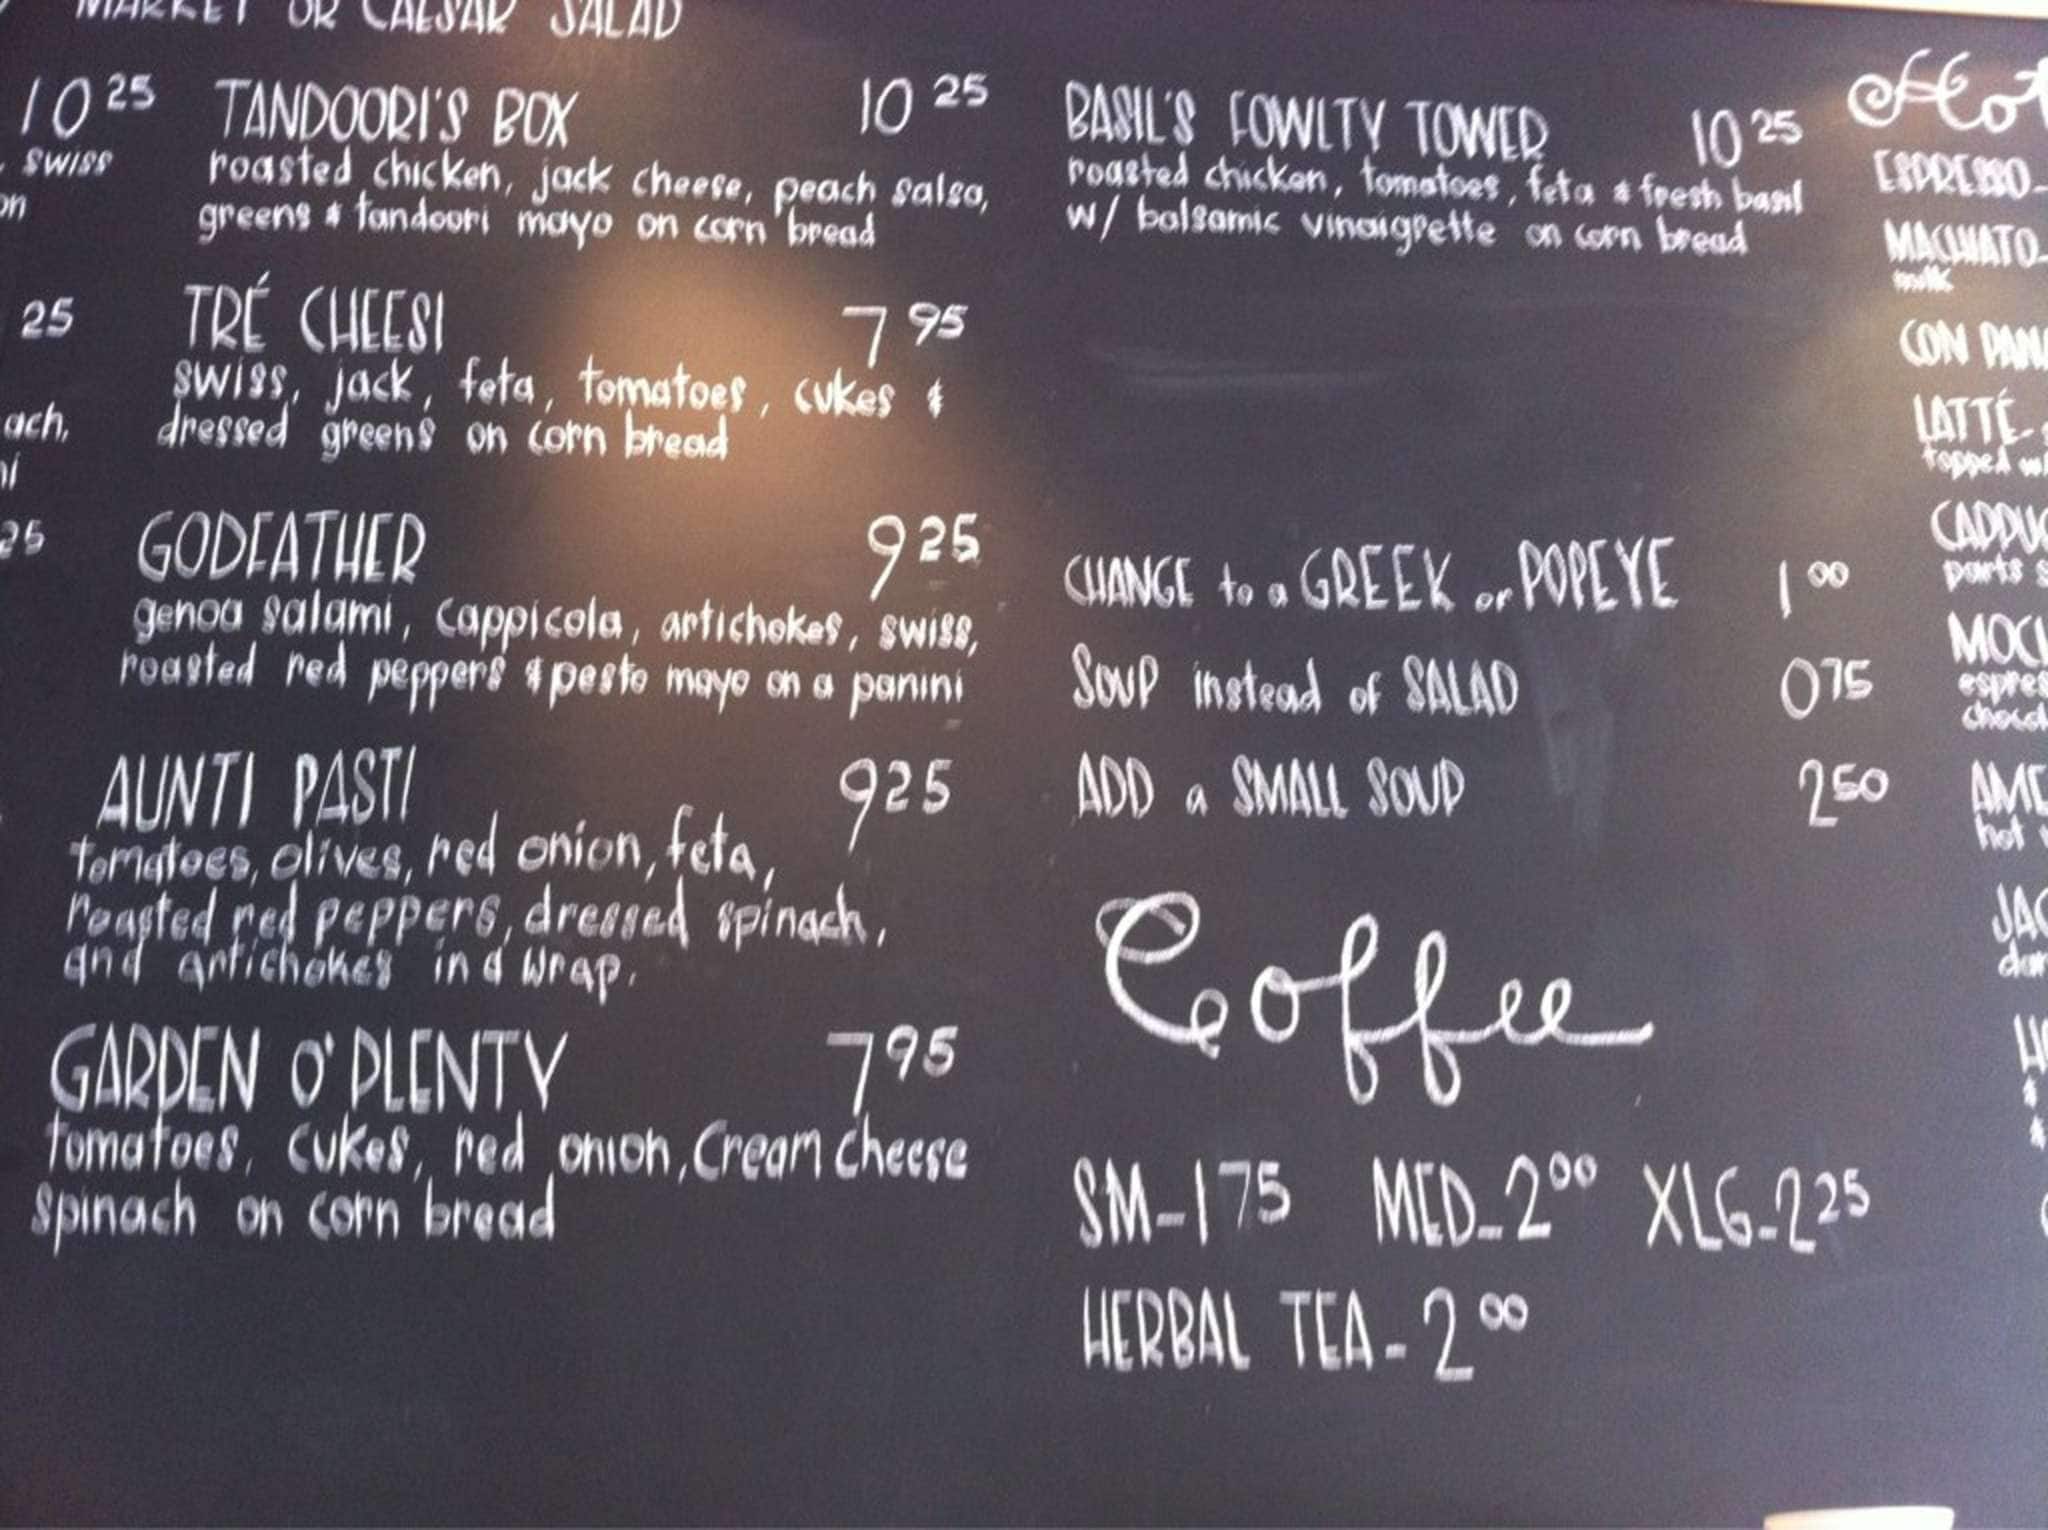 MARKET OR CAESAR SALAD
10 25
swiss
25
ach,
25
TANDOORI'S BOX 10 25
roasted chicken, jack cheese, peach salsa,
greens & tandoori mayo on corn bread
TRÉ CHEESI 7 95
swiss, jack, feta, tomatoes, cukes &
dressed greens on corn bread
GODFATHER 9 25
genoa salami, cappicola, artichokes, swiss,
roasted red peppers & pesto mayo on a panini
AUNTI PASTI 9 25
tomatoes, olives, red onion, feta,
roasted red peppers, dressed spinach,
and artichokes in a wrap.
GARDEN O' PLENTY 7 95
tomatoes, cukes, red onion, cream cheese
spinach on corn bread
BASIL'S FOWLTY TOWER 10 25
roasted chicken, tomatoes, feta & fresh basil
w/ balsamic vinaigrette on corn bread
CHANGE to a GREEK or POPEYE 1 00
SOUP instead of SALAD 0 75
ADD a SMALL SOUP 2 50
Coffee
SM-1 75 MED-2 00 XLG-2 25
HERBAL TEA-2 00
Hot
ESPRESSO-
MACHIATO-
milk
CON PANA
LATTÉ-
topped w/
CAPPUC
parts s
MOCH
espres
chocol
AME
hot
JAC
dar